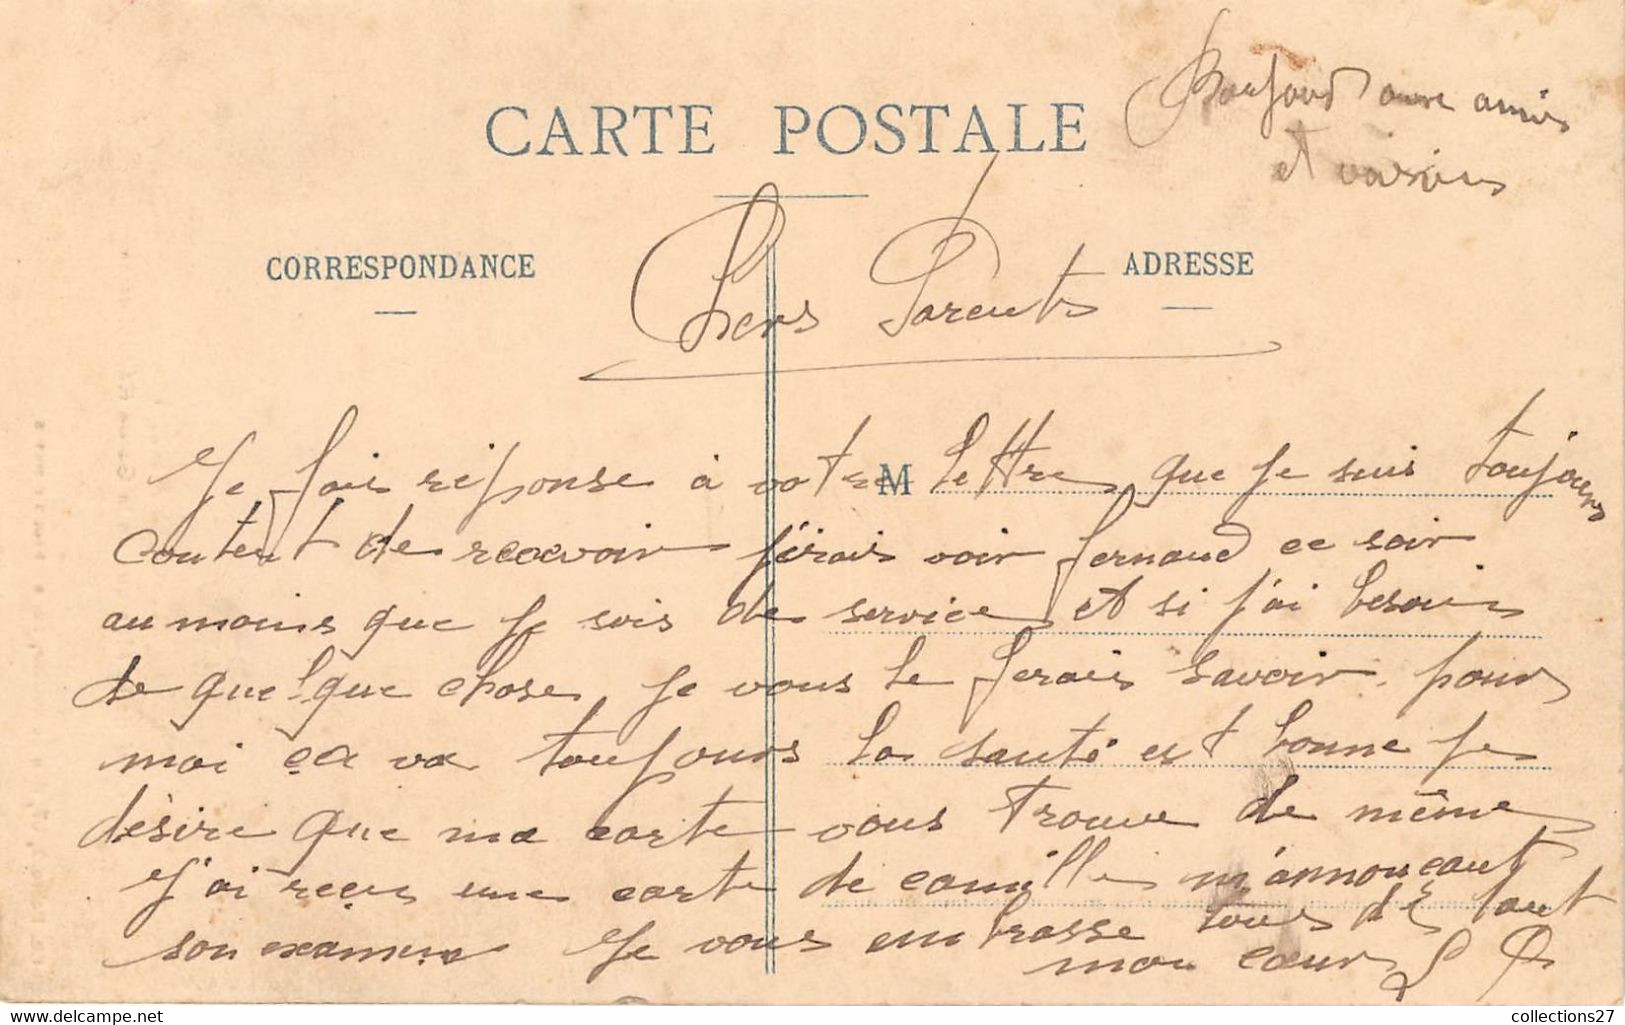 CARTE POSTALE
et voisins
CORRESPONDANCE
ADRESSE
Chers Parents
M
Je fais réponse à votre lettre que je suis toujours
content de recevoir j'irais voir fernand ce soir
au moins que je sois de service et si j'ai besoin
de quelque chose je vous le ferais savoir pour
moi ça va toujours la santé est bonne je
désire que ma carte vous trouve de même
J'ai reçu une carte de camille m'annonçant
son examen Je vous embrasse tous de tout
mon cœur
collections27